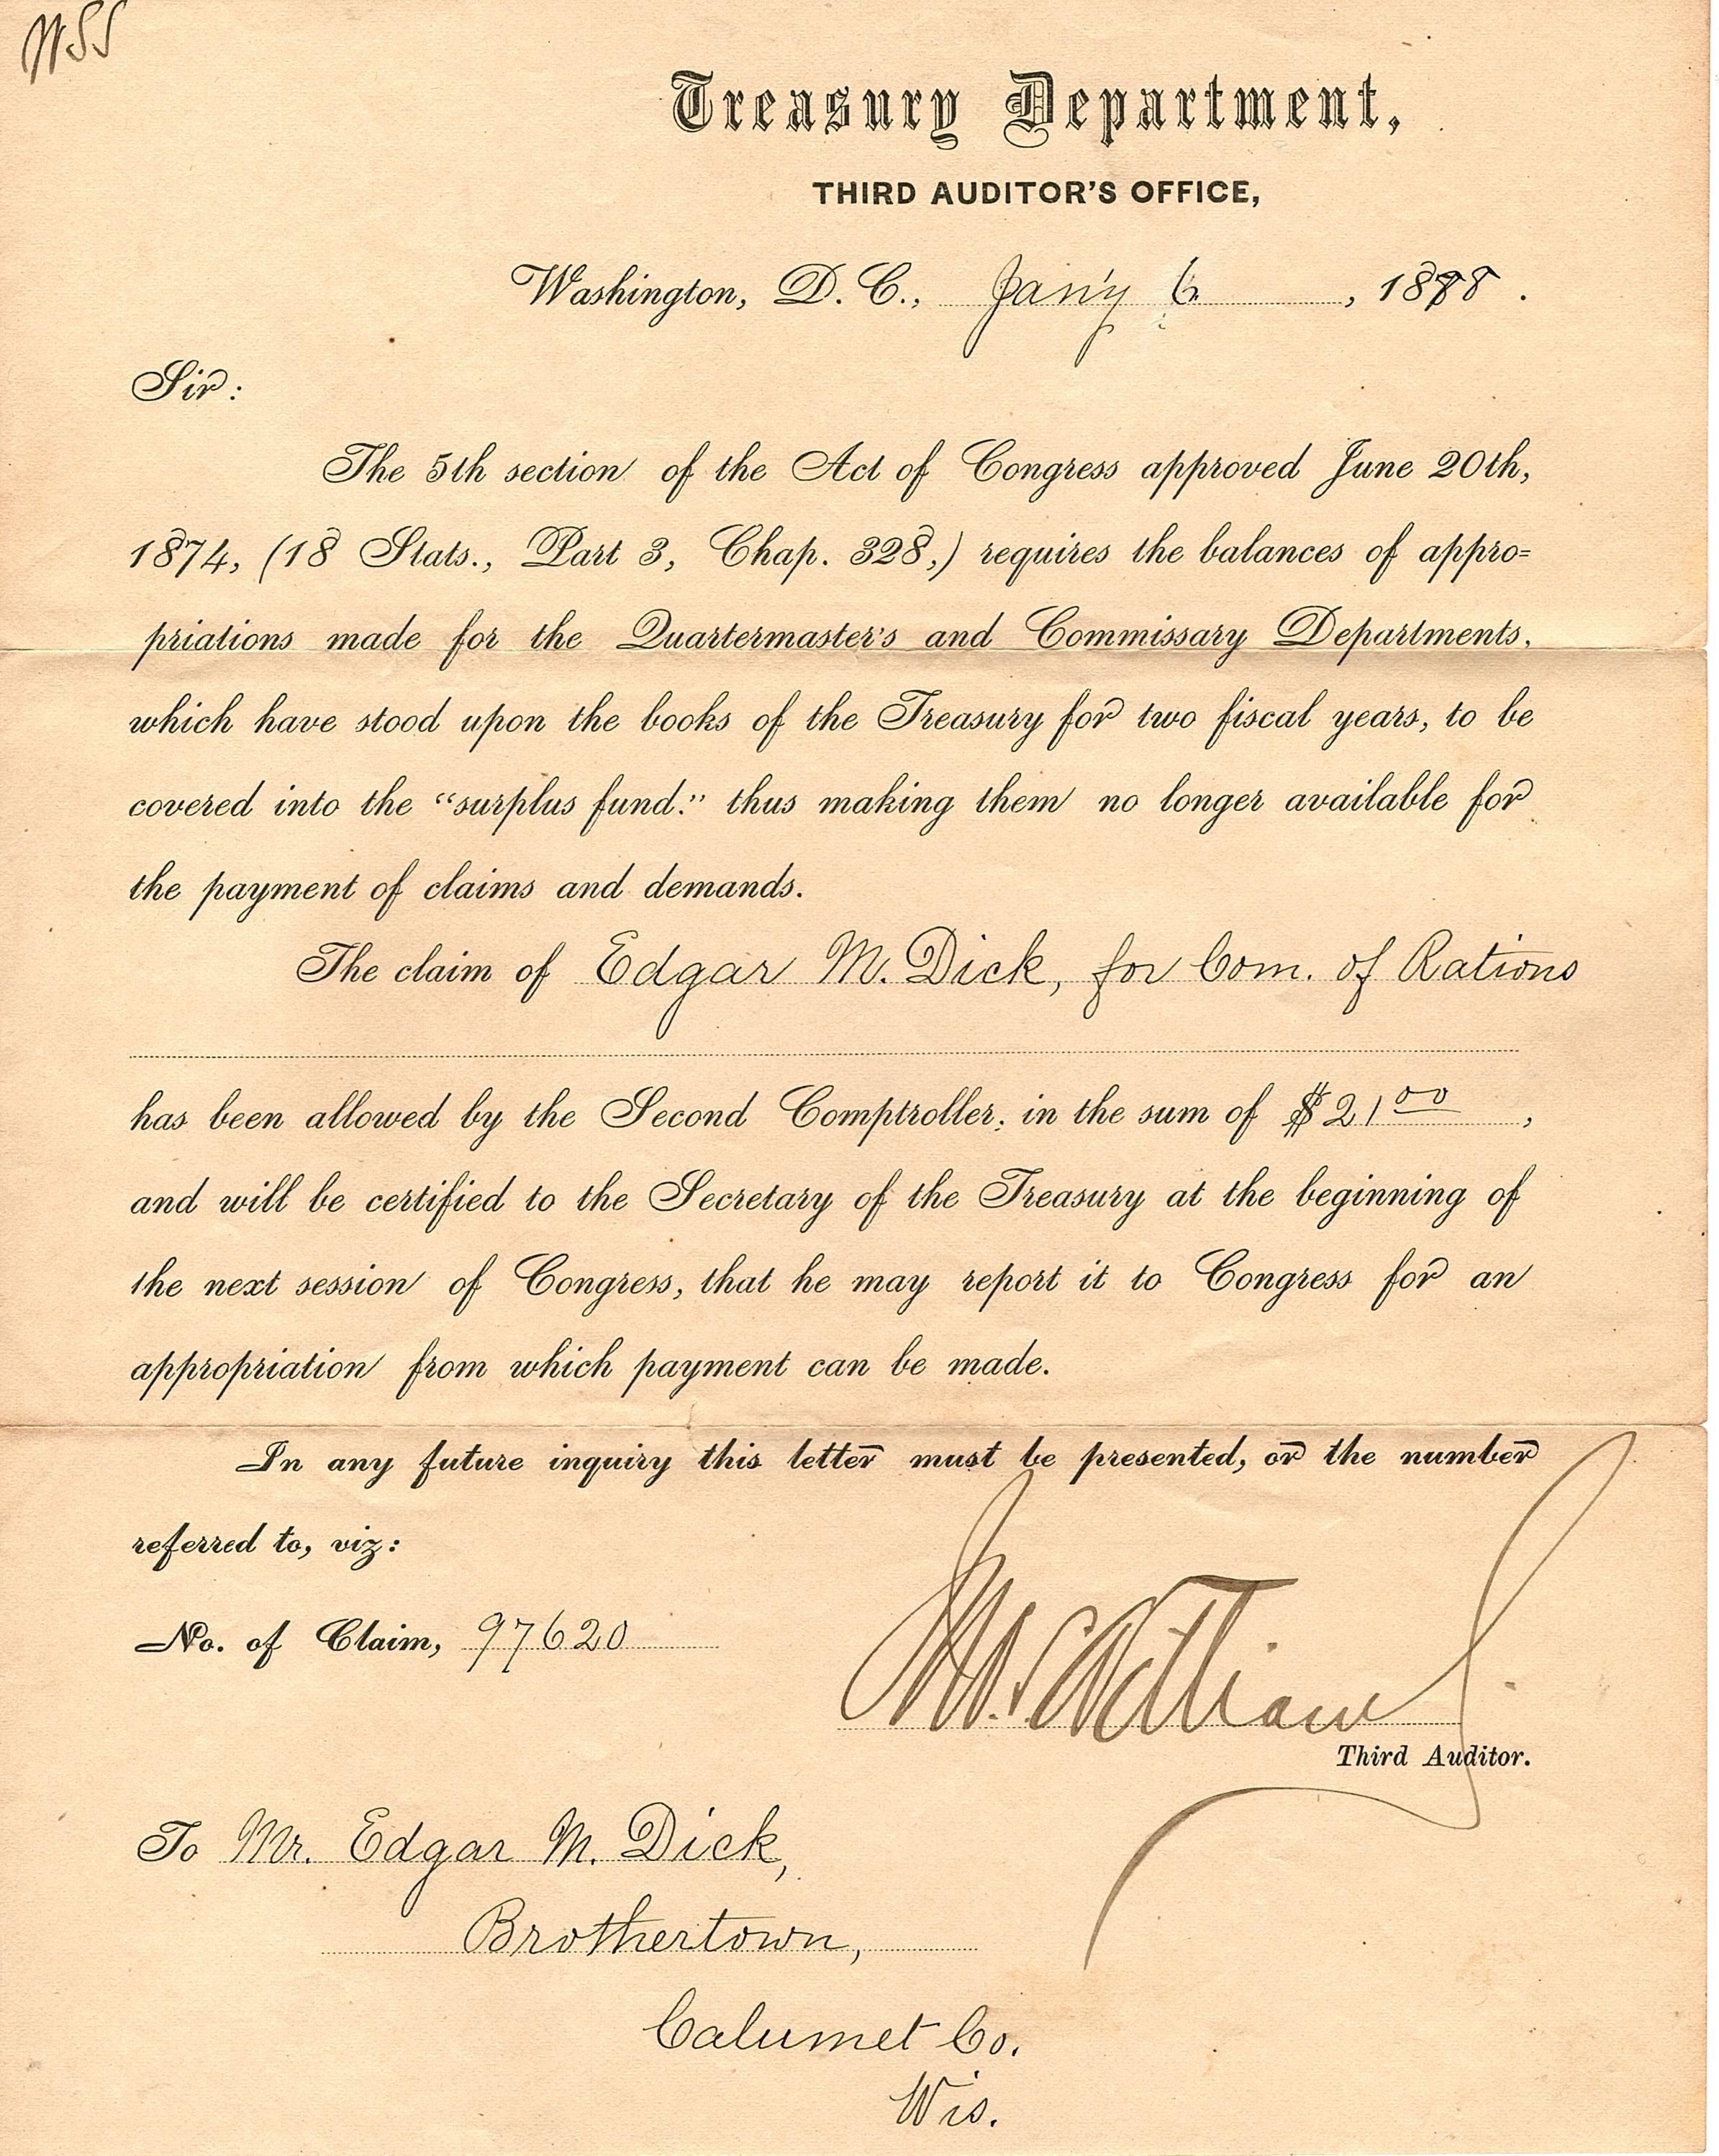 WSS
Treasury Department,
THIRD AUDITOR'S OFFICE,
Washington, D. C., Jan'y 6, 1888.
Sir:
The 5th section of the Act of Congress approved June 20th,
1874, (18 Stats., Part 3, Chap. 328,) requires the balances of appro=
priations made for the Quartermaster's and Commissary Departments,
which have stood upon the books of the Treasury for two fiscal years, to be
covered into the "surplus fund." thus making them no longer available for
the payment of claims and demands.
The claim of Edgar M. Dick, for Com. of Rations
has been allowed by the Second Comptroller, in the sum of $21 00,
and will be certified to the Secretary of the Treasury at the beginning of
the next session of Congress, that he may report it to Congress for an
appropriation from which payment can be made.
In any future inquiry this letter must be presented, or the number
referred to, viz:
No. of Claim, 97620
Jno. S. Williams
Third Auditor.
To Mr. Edgar M. Dick,
Brothertown,
Calumet Co.
Wis.